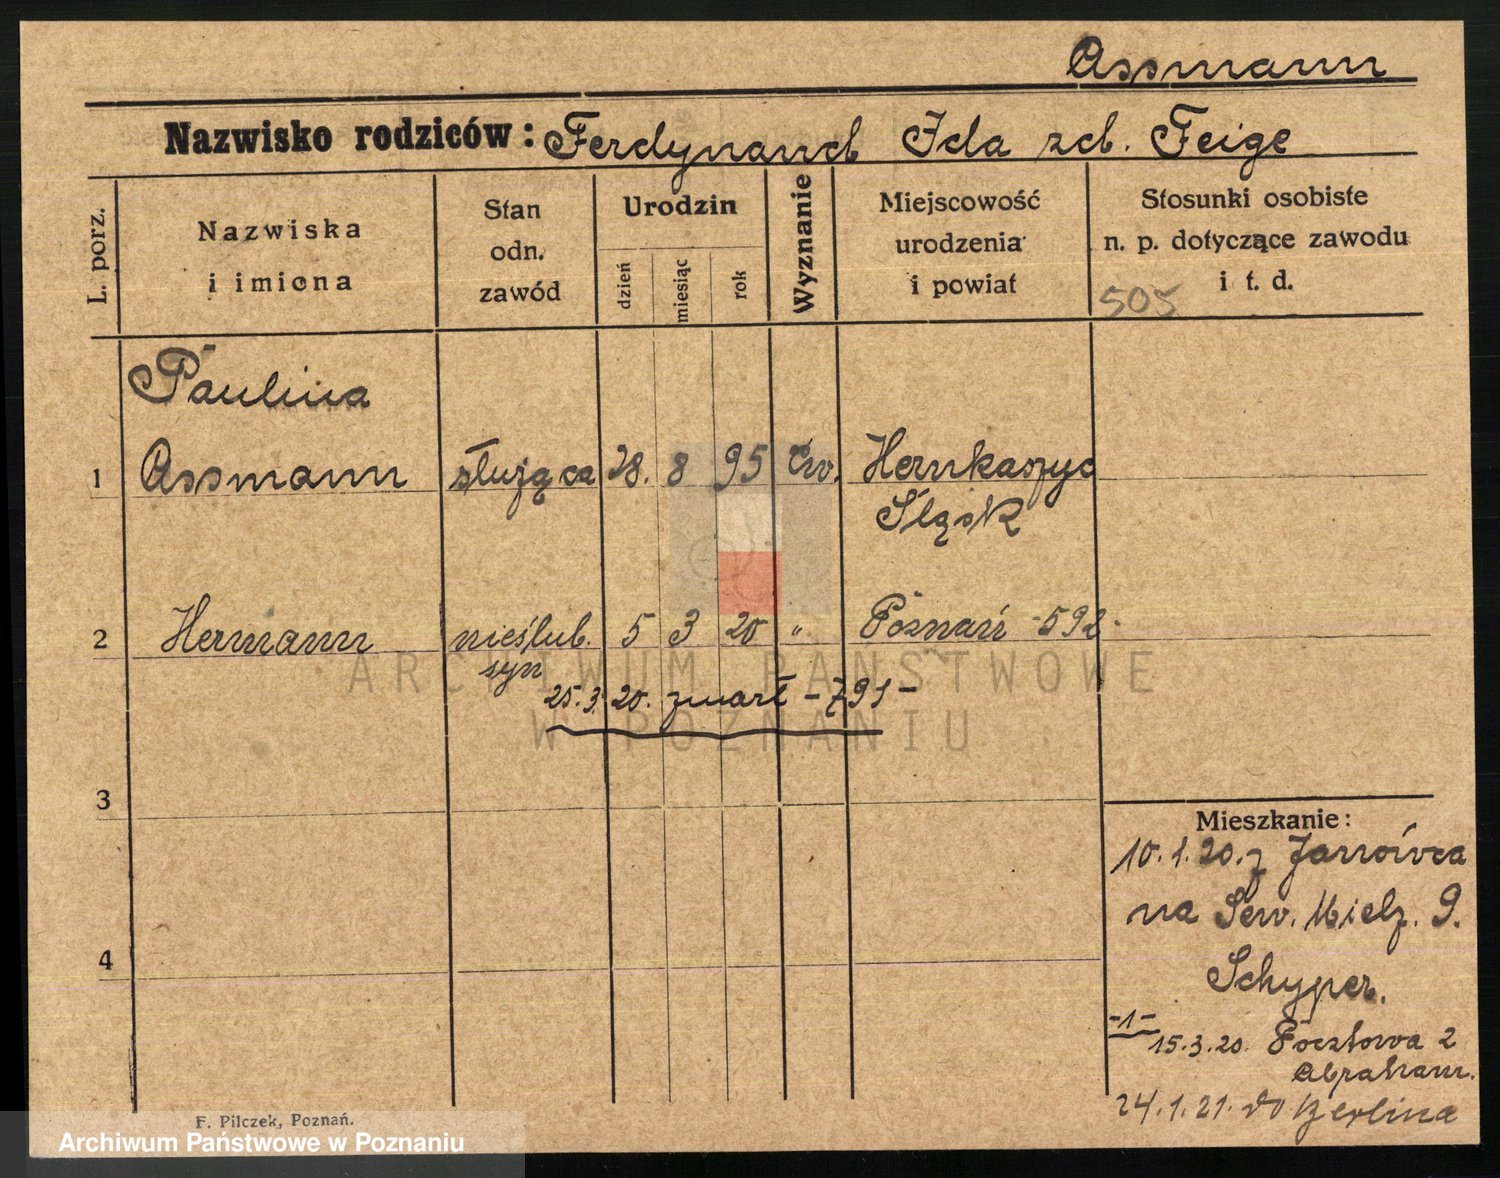 Assmann
Nazwisko rodziców: Ferdynand Ida zd. Feige
L. porz.
Nazwiska
i imiona
Stan
odn.
zawód
Urodzin
dzień
miesiąc
rok
Wyznanie
Miejscowość
urodzenia
i powiat
Stosunki osobiste
n. p. dotyczące zawodu
i t. d.
505
Paulina
1 Assmann służąca 28. 8 95 Ew. Hernkaszyc
Śląsk
2 Hermann nieślub. 5 3 20 " Poznań -592-
syn
25.3.20. zmarł -791-
3
Mieszkanie:
10.1.20. z Janówca
na Sew. Mielż. 9.
4
Schyper.
-1-
15.3.20. Pocztowa 2
Abraham.
24.1.21. do Berlina
F. Pilczek, Poznań.
ARCHIWUM PAŃSTWOWE
W POZNANIU
Archiwum Państwowe w Poznaniu